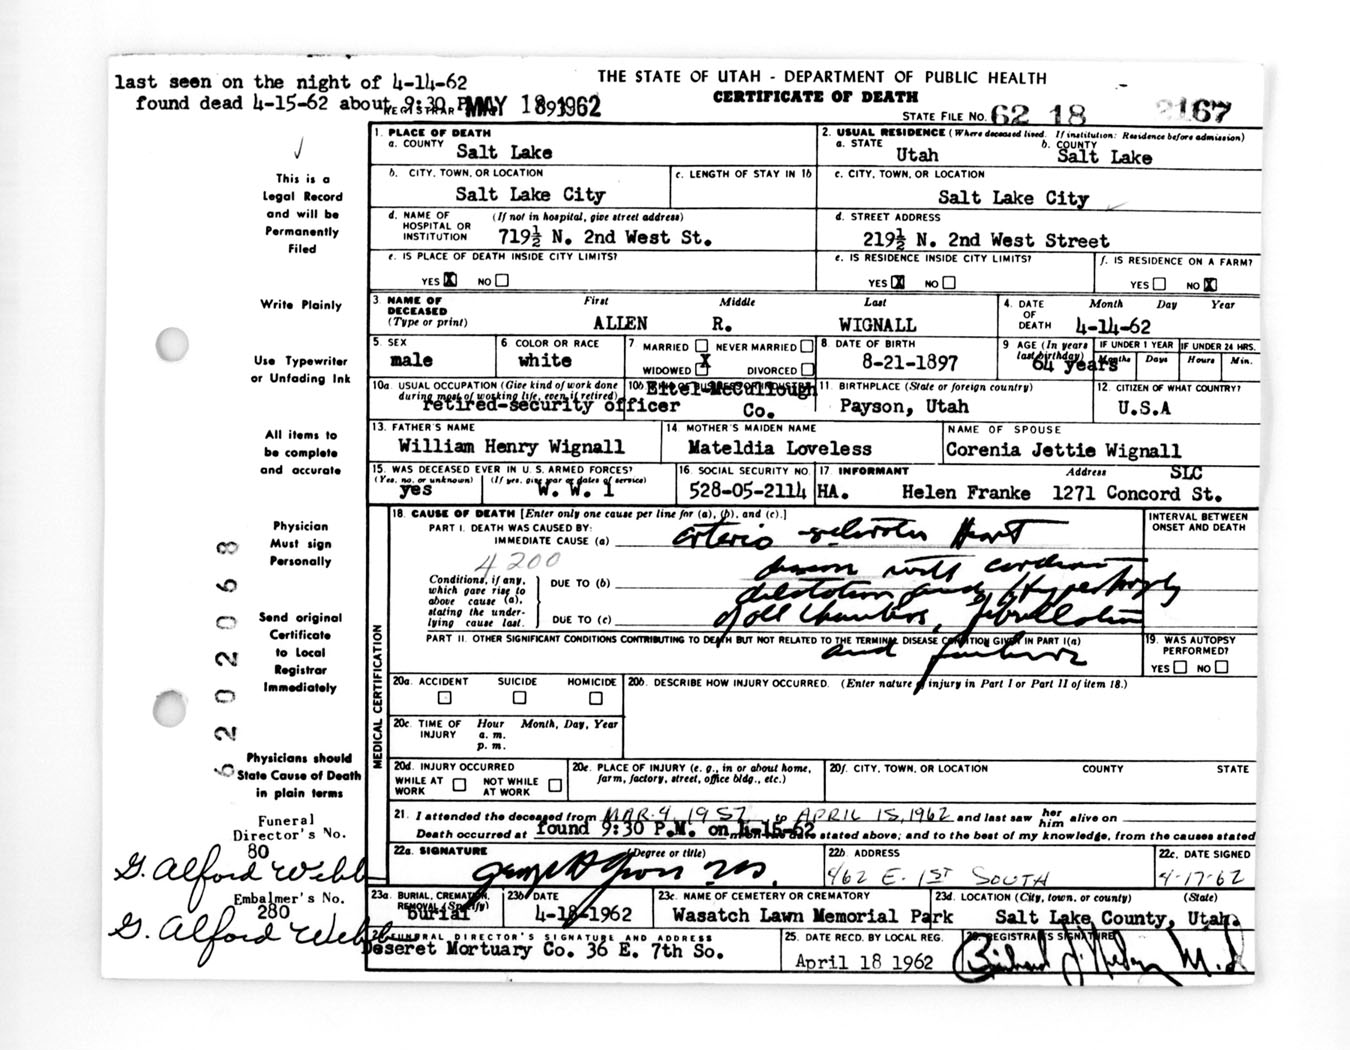 last seen on the night of 4-14-62
found dead 4-15-62 about 9:30 P.M.
MAY 18 1962
THE STATE OF UTAH - DEPARTMENT OF PUBLIC HEALTH
CERTIFICATE OF DEATH
STATE FILE NO. 62 18 2167
This is a
Legal Record
and will be
Permanently
Filed
Write Plainly
Use Typewriter
or Unfading Ink
All items to
be complete
and accurate
Physician
Must sign
Personally
Send original
Certificate
to Local
Registrar
Immediately
Physicians should
State Cause of Death
in plain terms
Funeral
Director's No.
80
G. Alford Webb
Embalmer's No.
280
G. Alford Webb
1. PLACE OF DEATH
a. COUNTY Salt Lake
2. USUAL RESIDENCE (Where deceased lived. If institution: Residence before admission)
a. STATE Utah b. COUNTY Salt Lake
b. CITY, TOWN, OR LOCATION Salt Lake City
c. LENGTH OF STAY IN 1b
c. CITY, TOWN, OR LOCATION Salt Lake City
d. NAME OF HOSPITAL OR INSTITUTION (If not in hospital, give street address) 719½ N. 2nd West St.
d. STREET ADDRESS 219½ N. 2nd West Street
e. IS PLACE OF DEATH INSIDE CITY LIMITS?
YES X NO
e. IS RESIDENCE INSIDE CITY LIMITS?
YES X NO
f. IS RESIDENCE ON A FARM?
YES NO X
3. NAME OF DECEASED (Type or print) First Middle Last
ALLEN R. WIGNALL
4. DATE OF DEATH Month Day Year
4-14-62
5. SEX male
6. COLOR OR RACE white
7 MARRIED NEVER MARRIED
WIDOWED X DIVORCED
8. DATE OF BIRTH 8-21-1897
9 AGE (In years last birthday) 64 years
IF UNDER 1 YEAR Months Days
IF UNDER 24 HRS. Hours Min.
10a. USUAL OCCUPATION (Give kind of work done during most of working life, even if retired)
retired-security officer
10b. Eitel-McCullough Co.
11. BIRTHPLACE (State or foreign country) Payson, Utah
12. CITIZEN OF WHAT COUNTRY? U.S.A
13. FATHER'S NAME William Henry Wignall
14. MOTHER'S MAIDEN NAME Mateldia Loveless
NAME OF SPOUSE Corenia Jettie Wignall
15. WAS DECEASED EVER IN U.S. ARMED FORCES?
(Yes, no, or unknown) (If yes, give war or dates of service)
yes W. W. 1
16. SOCIAL SECURITY NO. 528-05-2114
17. INFORMANT Address SLC
HA. Helen Franke 1271 Concord St.
18. CAUSE OF DEATH [Enter only one cause per line for (a), (b), and (c).]
INTERVAL BETWEEN ONSET AND DEATH
PART I. DEATH WAS CAUSED BY:
IMMEDIATE CAUSE (a) arterio sclerotic Heart
4200
Conditions, if any, which gave rise to above cause (a), stating the underlying cause last.
DUE TO (b) disease with cardiac
dilatation and Hypertrophy
DUE TO (c) of all Chambers, fibrillation
PART II. OTHER SIGNIFICANT CONDITIONS CONTRIBUTING TO DEATH BUT NOT RELATED TO THE TERMINAL DISEASE CONDITION GIVEN IN PART I(a)
and failure
19. WAS AUTOPSY PERFORMED?
YES NO
20a. ACCIDENT SUICIDE HOMICIDE
20b. DESCRIBE HOW INJURY OCCURRED. (Enter nature of injury in Part I or Part II of item 18.)
20c. TIME OF INJURY Hour a. m. p. m. Month, Day, Year
20d. INJURY OCCURRED
WHILE AT WORK NOT WHILE AT WORK
20e. PLACE OF INJURY (e. g., in or about home, farm, factory, street, office bldg., etc.)
20f. CITY, TOWN, OR LOCATION COUNTY STATE
21. I attended the deceased from MAR. 9, 1957 to APRIL 15, 1962 and last saw her him alive on
Death occurred at found 9:30 P.M. on 4-15-62 stated above; and to the best of my knowledge, from the causes stated
22a. SIGNATURE (Degree or title)
22b. ADDRESS 462 E. 1ST SOUTH
22c. DATE SIGNED 4-17-62
23a. BURIAL, CREMATION, REMOVAL (Specify) burial
23b DATE 4-18-1962
23c. NAME OF CEMETERY OR CREMATORY Wasatch Lawn Memorial Park
23d. LOCATION (City, town, or county) (State)
Salt Lake County, Utah.
FUNERAL DIRECTOR'S SIGNATURE AND ADDRESS
Deseret Mortuary Co. 36 E. 7th So.
25. DATE RECD. BY LOCAL REG. April 18 1962
26. REGISTRAR'S SIGNATURE